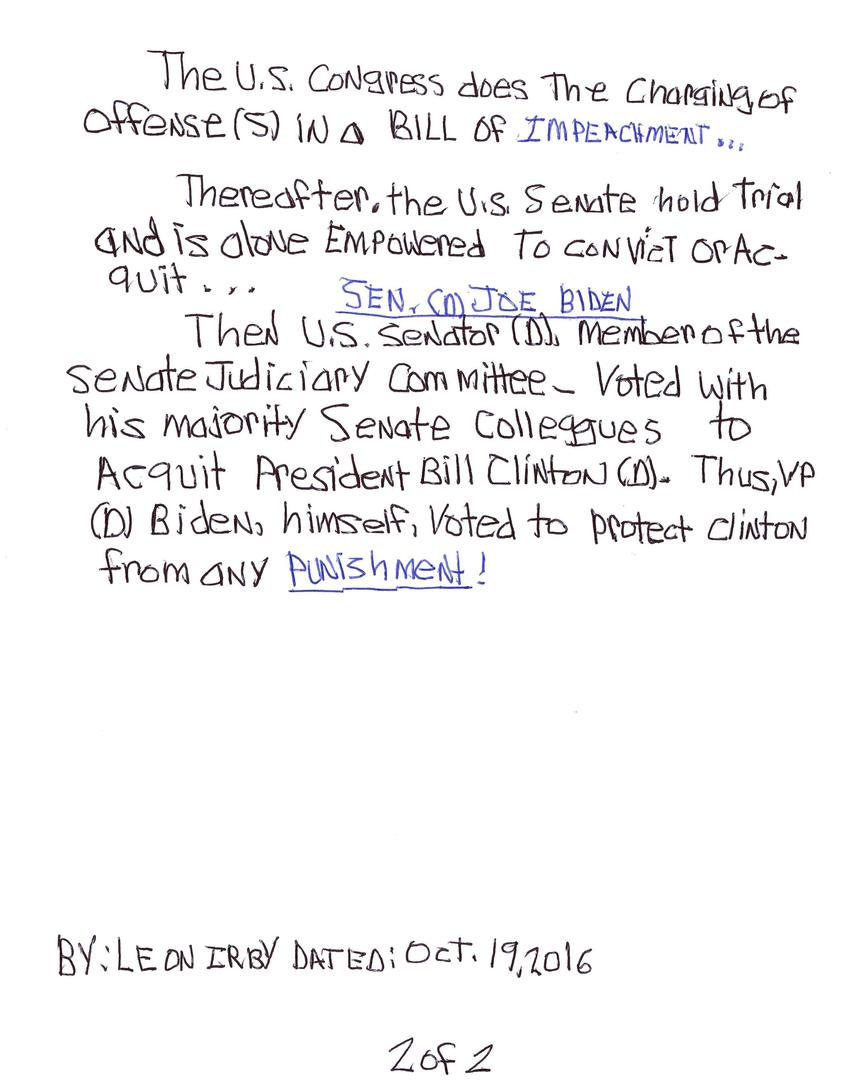 The U.S. Congress does The Charging of
Offense(s) IN a BILL OF IMPEACHMENT...
Thereafter, the U.S. Senate hold Trial
and is alone EMPOWERED To CONVICT OR AC-
quit...
SEN. (D) JOE BIDEN
Then U.S. Senator (D), Member of the
Senate Judiciary Committee - Voted with
his majority Senate Colleggues to
Acquit President Bill Clinton (D). Thus, VP
(D) Biden, himself, Voted to protect Clinton
from any PUNIShMENt!
BY: LEON IRBY DATED: Oct. 19, 2016
2 of 2